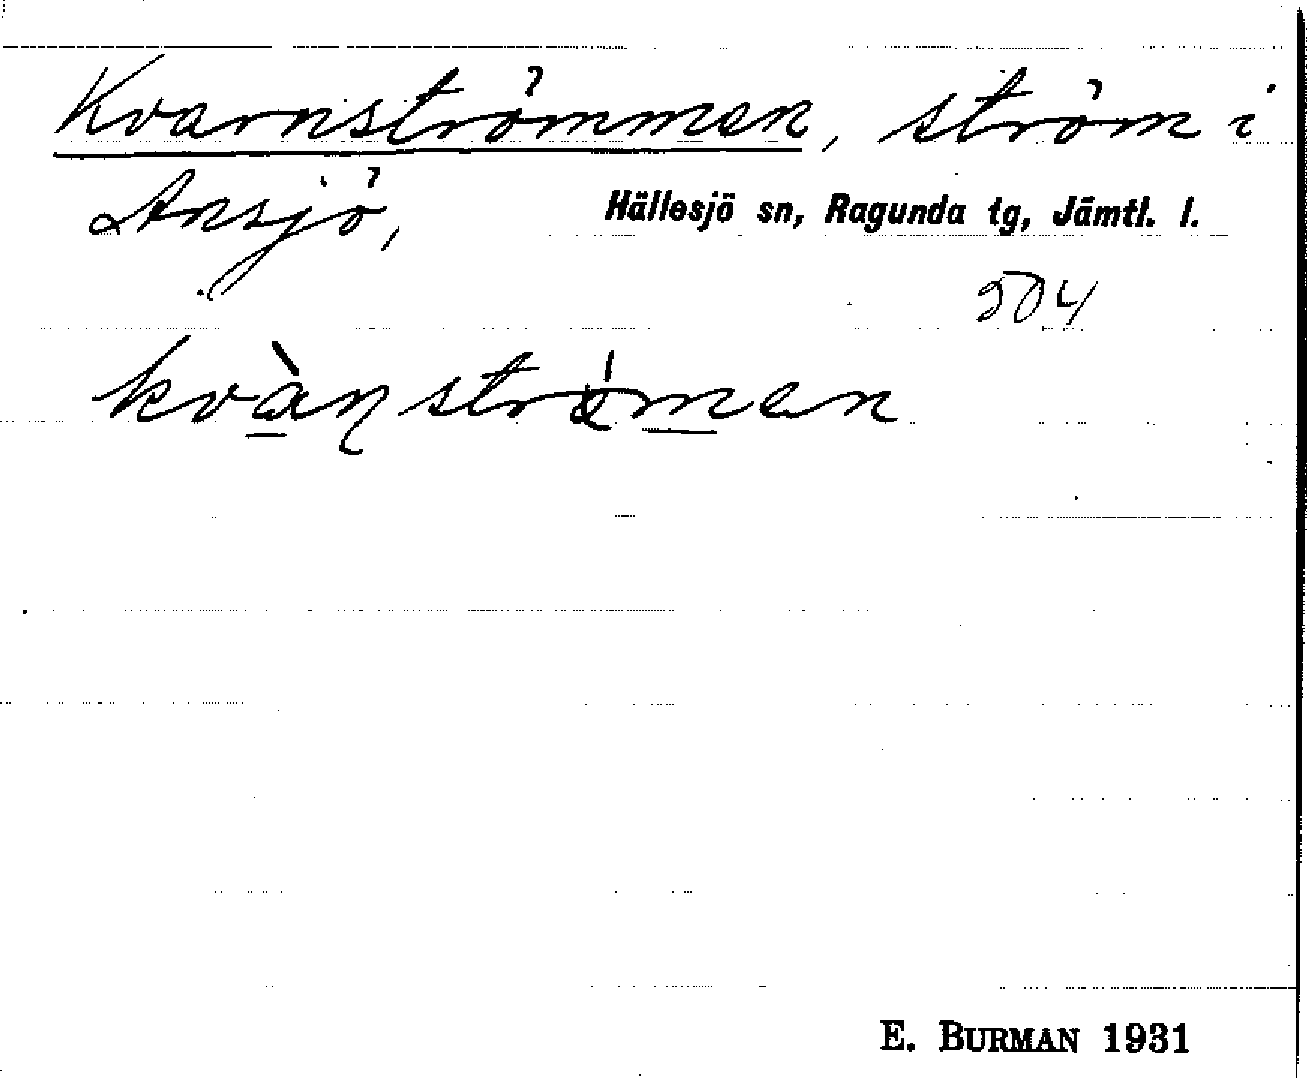 Kvarnströmmen, ström i
Ansjö, Hällesjö sn, Ragunda tg, Jämtl. l.
504
E. BURMAN 1931